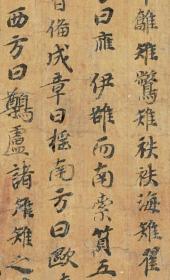 雉鷩雉秩秩海雉翟
曰伊雒而南素質五
皆俻成章曰摇南方曰
西方曰鷷盧諸雉雉之